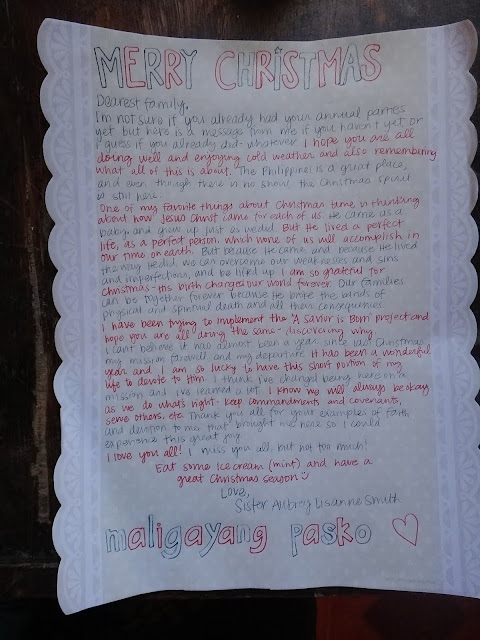 MERRY CHRISTMAS
Dearest family,
I'm not sure if you already had your annual parties
yet but here is a message from me if you haven't yet or
I guess if you already did - whatever. I hope you are all
doing well and enjoying cold weather and also remembering
what all of this is about. The Philippines is a great place,
and even though there is no snow the Christmas spirit
is still here.
One of my favorite things about Christmas time is thinking
about how Jesus Christ came for each of us. He came as a
baby and grew up just as we did. But He lived a perfect
life, as a perfect person, which none of us will accomplish in
our time on earth. But because He came and because He lived
the way He did, we can overcome our weaknesses and sins
and imperfections, and be lifted up. I am so grateful for
Christmas - this birth changed our world forever. Our families
can be together forever because He broke the bands of
physical and spiritual death and all their consequences
I have been trying to implement the "A Savior is Born" project and
hope you are all doing the same - discovering why.
I can't believe it has almost been a year since last Christmas
my mission farewell and my departure. It has been a wonderful
year and I am so lucky to have this short portion of my
life to devote to Him. I think I've changed being here on a
mission and I've learned a lot. I know we will always be okay
as we do what's right - keep commandments and covenants,
serve others, etc. Thank you all for your examples of faith
and devotion to me that brought me here so I could
experience this great joy.
I love you all! I miss you all, but not too much!
Eat some ice cream (mint) and have a
great Christmas season :)
Love,
Sister Aubrey Lisanne Smith
maligayang pasko ♡